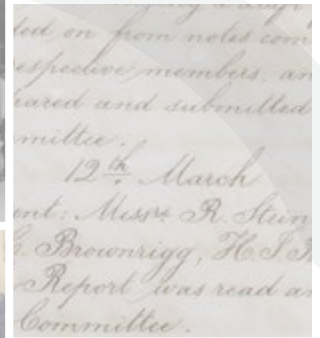 ded on from notes com
espective members, an
pared and submitted
mittee.
12th March
ent: Messrs R.
Brownrigg, H. S.
Report was read a
Committee.